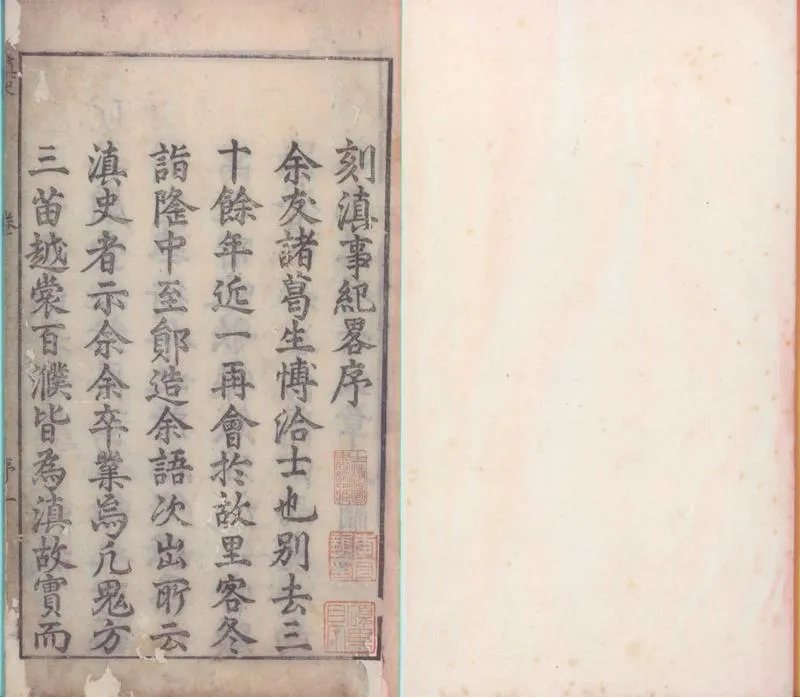 刻滇事紀畧序
余友諸葛生愽洽士也別去三
十餘年近一再會扵故里客冬
詣隆中至鄖造余語次出所云
滇史者示余余卒業焉凡鬼方
三苗越裳百濮皆為滇故實而